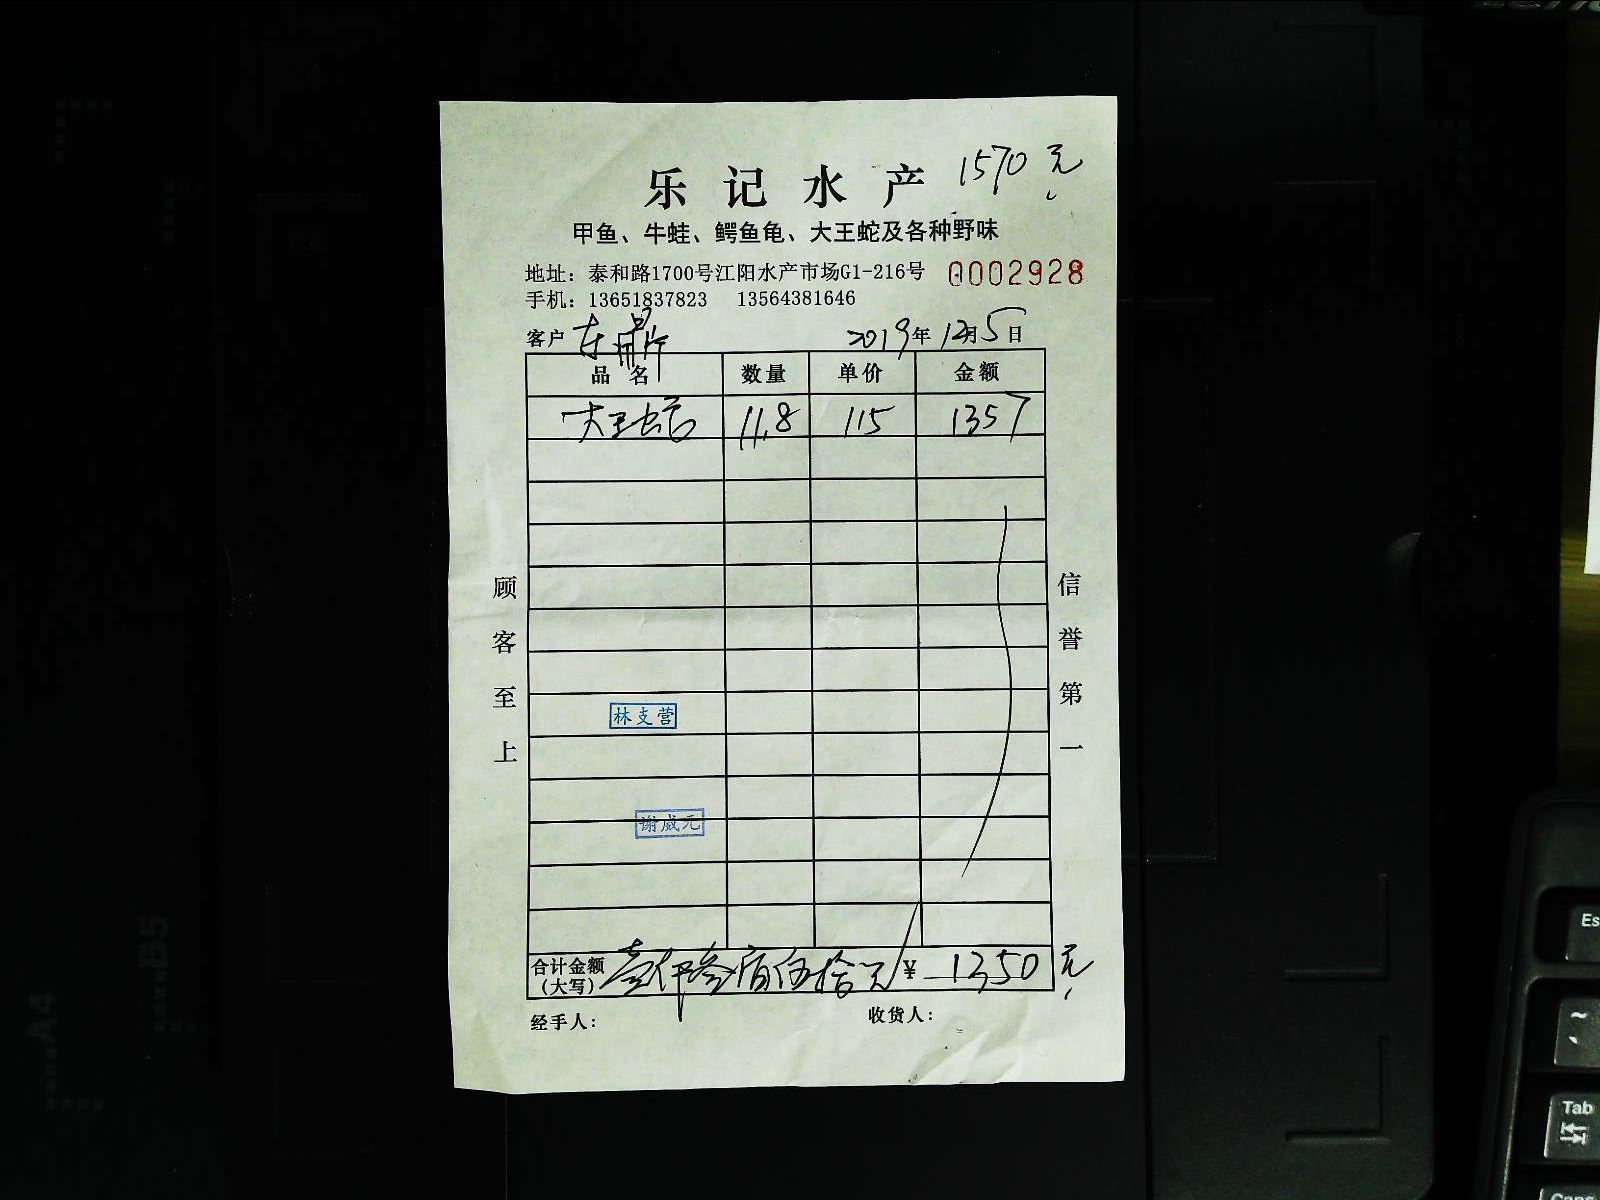 1570元
乐记水产
甲鱼、牛蛙、鳄鱼龟、大王蛇及各种野味
地址：泰和路1700号江阳水产市场G1-216号 0002928
手机：13651837823 13564381646
客户 2019年12月5日
品名 数量 单价 金额
大王蛇 11.8 115 1357
顾客至上
信誉第一
林支营
谢威元
合计金额（大写） 壹仟叁佰伍拾元 ¥ 1350元
经手人： 收货人：
Es
~
Tab
Caps
B5
A4